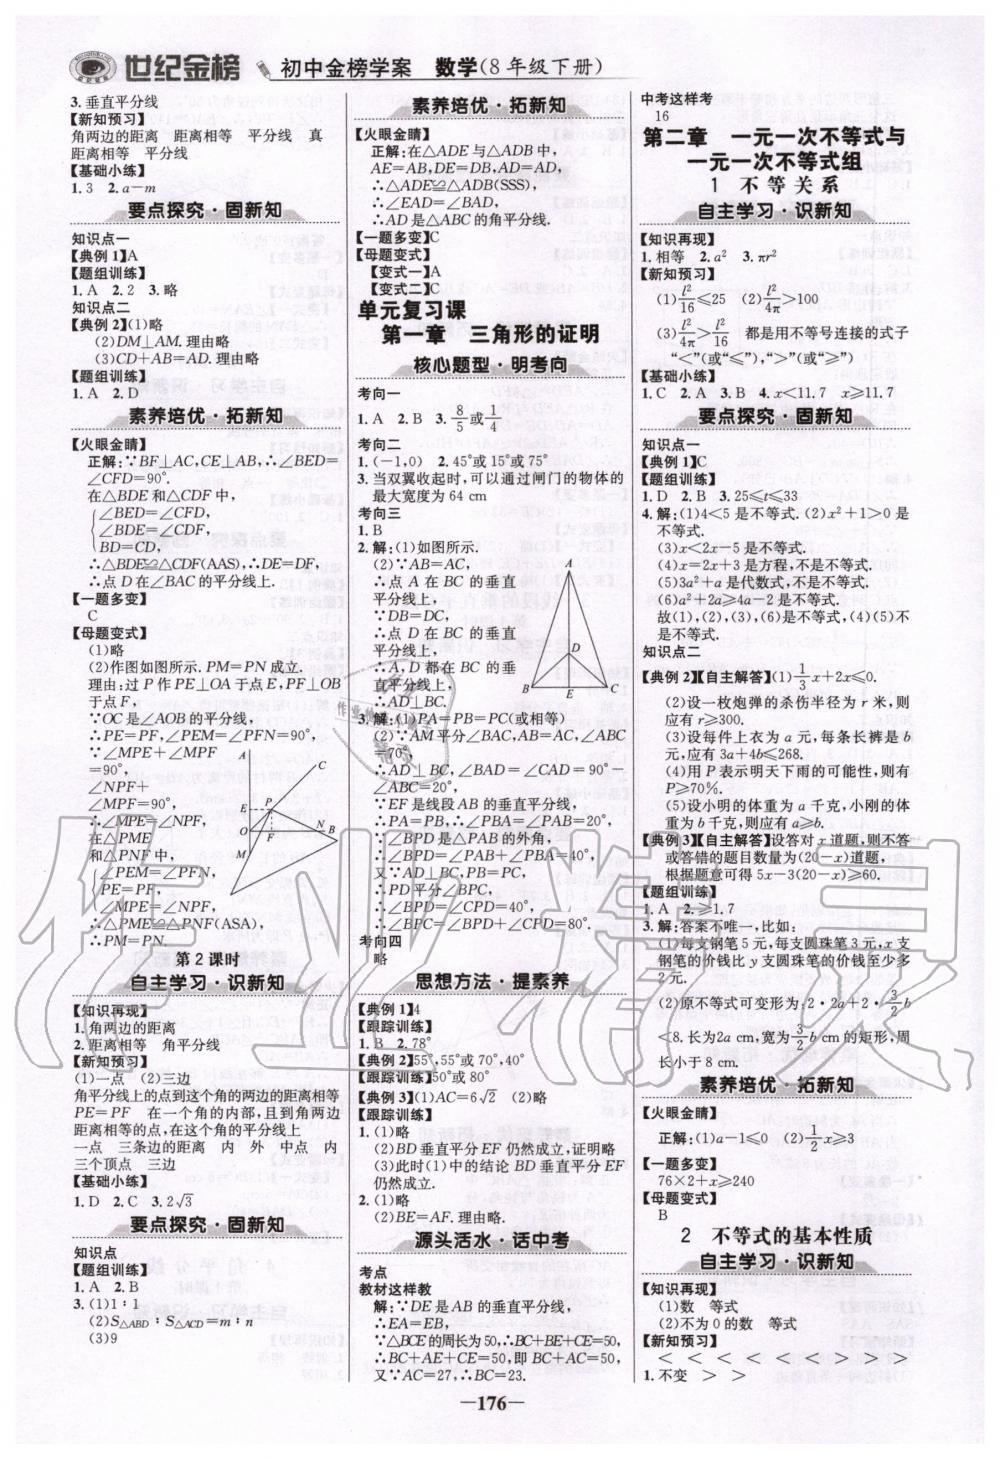 世纪金榜 初中金榜学案 数学(8年级下册)
3.垂直平分线
【新知预习】
角两边的距离 距离相等 平分线 真
距离相等 平分线
【基础小练】
1.3 2.a-m
要点探究·固新知
知识点一
【典例1】A
【题组训练】
1.A 2.2 3.略
知识点二
【典例2】(1)略
(2)DM⊥AM.理由略
(3)CD+AB=AD.理由略
【题组训练】
1.A 2.D
素养培优·拓新知
【火眼金睛】
正解:∵BF⊥AC,CE⊥AB,∴∠BED=
∠CFD=90°.
在△BDE和△CDF中,
∠BED=∠CFD,
∠BDE=∠CDF,
BD=CD,
∴△BDE≌△CDF(AAS),∴DE=DF,
∴点D在∠BAC的平分线上.
【一题多变】
C
【母题变式】
(1)略
(2)作图如图所示.PM=PN成立.
理由:过P作PE⊥OA于点E,PF⊥OB
于点F,
∵OC是∠AOB的平分线,
∴PE=PF,∠PEM=∠PFN=90°,
∵∠MPE+∠MPF
=90°,
∠NPF+
∠MPF=90°,
∴∠MPE=∠NPF,
在△PME
和△PNF中,
∠PEM=∠PFN,
PE=PF,
∠MPE=∠NPF,
∴△PME≌△PNF(ASA),
∴PM=PN.
A
C
E
P
O
N
B
M
第2课时
自主学习·识新知
【知识再现】
1.角两边的距离
2.距离相等 角平分线
【新知预习】
(1)一点 (2)三边
角平分线上的点到这个角的两边的距离相等
PE=PF 在一个角的内部,且到角两边
距离相等的点,在这个角的平分线上
一点 三条边的距离 内 外 中点 内
三个顶点 三边
【基础小练】
1.D 2.C 3.2√3
要点探究·固新知
知识点
【题组训练】
1.A 2.B
3.(1)1∶1
(2)S△ABD∶S△ACD=m∶n
(3)9
素养培优·拓新知
【火眼金睛】
正解:在△ADE与△ADB中,
AE=AB,DE=DB,AD=AD,
∴△ADE≌△ADB(SSS),
∴∠EAD=∠BAD,
∴AD是△ABC的角平分线.
【一题多变】C
【母题变式】
【变式一】A
【变式二】C
单元复习课
第一章 三角形的证明
核心题型·明考向
考向一
1.A 2.B 3.8/5或1/4
考向二
1.(-1,0) 2.45°或15°或75°
3.当双翼收起时,可以通过闸门的物体的
最大宽度为64 cm
考向三
1.B
2.解:(1)如图所示.
(2)∵AB=AC,
∴点A在BC的垂直
平分线上,
∵DB=DC,
∴点D在BC的垂直
平分线上,
∴A,D都在BC的垂
直平分线上,
∴AD⊥BC.
A
D
B
E
C
3.解:(1)PA=PB=PC(或相等)
(2)∵AM平分∠BAC,AB=AC,∠ABC
=70°,
∴AD⊥BC,∠BAD=∠CAD=90°-
∠ABC=20°,
∵EF是线段AB的垂直平分线,
∴PA=PB,∴∠PBA=∠PAB=20°,
∵∠BPD是△PAB的外角,
∴∠BPD=∠PAB+∠PBA=40°,
又∵AD⊥BC,PB=PC,
∴PD平分∠BPC,
∴∠BPD=∠CPD=40°,
∴∠BPC=∠BPD+∠CPD=80°.
考向四
略
思想方法·提素养
【典例1】4
【跟踪训练】
1.B 2.78°
【典例2】55°,55°或70°,40°
【跟踪训练】50°或80°
【典例3】(1)AC=6√2 (2)略
【跟踪训练】
1.(1)略
(2)BD垂直平分EF仍然成立,证明略
(3)此时(1)中的结论BD垂直平分EF
仍然成立.
2.(1)略
(2)BE=AF.理由略.
源头活水·话中考
考点
教材这样教
解:∵DE是AB的垂直平分线,
∴EA=EB,
∵△BCE的周长为50,∴BC+BE+CE=50,
∴BC+AE+CE=50,即BC+AC=50,
又∵AC=27,∴BC=23.
中考这样考
16
第二章 一元一次不等式与
一元一次不等式组
1 不等关系
自主学习·识新知
【知识再现】
1.相等 2.a² 3.πr²
【新知预习】
(1)l²/16≤25 (2)l²/4π>100
(3)l²/4π>l²/16 都是用不等号连接的式子
“<”(或“≤”),“>”(或“≥”)
【基础小练】
1.C 2.A 3.B 4.x<11.7 x≥11.7
要点探究·固新知
知识点一
【典例1】C
【题组训练】
1.D 2.B 3.25≤t≤33
4.解:(1)4<5是不等式.(2)x²+1>0是
不等式.
(3)x<2x-5是不等式.
(4)x=2x+3是方程,不是不等式.
(5)3a²+a是代数式,不是不等式.
(6)a²+2a≥4a-2是不等式.
故(1),(2),(3),(6)是不等式,(4)(5)不
是不等式.
知识点二
【典例2】【自主解答】(1)1/3x+2x≤0.
(2)设一枚炮弹的杀伤半径为r米,则
应有r≥300.
(3)设每件上衣为a元,每条长裤是b
元,应有3a+4b≤268.
(4)用P表示明天下雨的可能性,则有
P≥70%.
(5)设小明的体重为a千克,小刚的体
重为b千克,则应有a≥b.
【典例3】【自主解答】设答对x道题,则不答
或答错的题目数量为(20-x)道题,
根据题意可得5x-3(20-x)≥60.
【题组训练】
1.A 2.≥1.7
3.解:答案不唯一,比如:
(1)每支钢笔5元,每支圆珠笔3元,x支
钢笔的价钱比y支圆珠笔的价钱至少多
2元.
(2)原不等式可变形为:2·2a+2·3/2b
<8.长为2a cm,宽为3/2b cm的矩形,周
长小于8 cm.
素养培优·拓新知
【火眼金睛】
正解:(1)a-1≤0 (2)1/2x≥3
【一题多变】
76×2+x≥240
【母题变式】
B
2 不等式的基本性质
自主学习·识新知
【知识再现】
(1)数 等式
(2)不为0的数 等式
【新知预习】
< < < < < < > > >
1.不变 > >
—176—
作业精灵